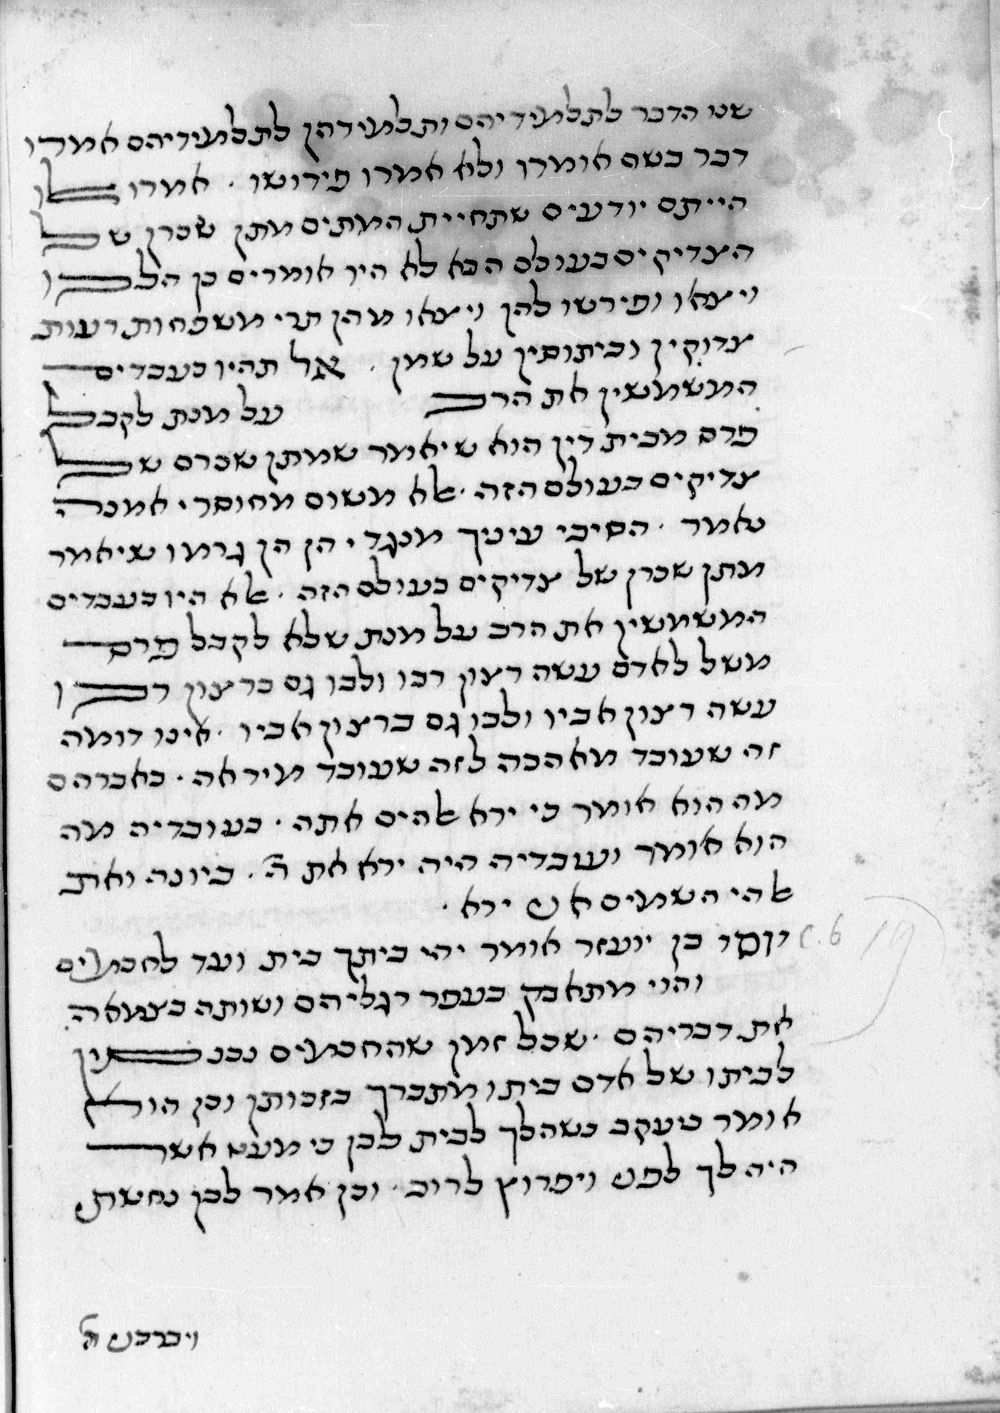 שנו הדבר לתלמידיהם ותלמידהן לתלמידיהם אמרו
דבר בשם אומרן ולא אמרו פירושו · אמרו אילו
הייתם יודעים שתחיית המתים מתן שכרן של
הצדיקים בעולם הבא לא היו אומרים כן הלכו
ויצאו ופירשו להן ויצאו מהן תרי משפחות רעות
צדוקין וביתוסין על שמן · אל תהיו כעבדים
המשמשין את הרב על מנת לקבל
פרס מבית דין הוא שיאמר שמתן שכרם של
צדיקים בעולם הזה · אלא משום מחוסרי אמנה
נאמר · הסיבי עיניך מנגדי הן הן גרמו שיאמר
מתן שכרן של צדיקים בעולם הזה · אלא היו כעבדים
המשמשין את הרב על מנת שלא לקבל פרס
משל לאדם עשה רצון רבו ולבו גס ברצון רבו
עשה רצון אביו ולבו גס ברצון אביו · אינו דומה
זה שעובד מאהבה לזה שעובד מיראה · באברהם
מה הוא אומר כי ירא אלהים אתה · בעובדיה מה
הוא אומר ועבדיה היה ירא את ה' · ביונה ואת
אלהי השמים אני ירא ·
יוסי בן יועזר אומר יהי ביתך בית ועד לחכמים
והוי מתאבק בעפר רגליהם ושותה בצמאה
את דבריהם · שכל זמן שהחכמים נכנסין
לביתו של אדם ביתו מתברך בזכותן וכן הוא
אומר ביעקב כשהלך לבית לבן כי מעט אשר
היה לך לפני ויפרוץ לרוב · וכן אמר לבן נחשתי
ויברכני ה'